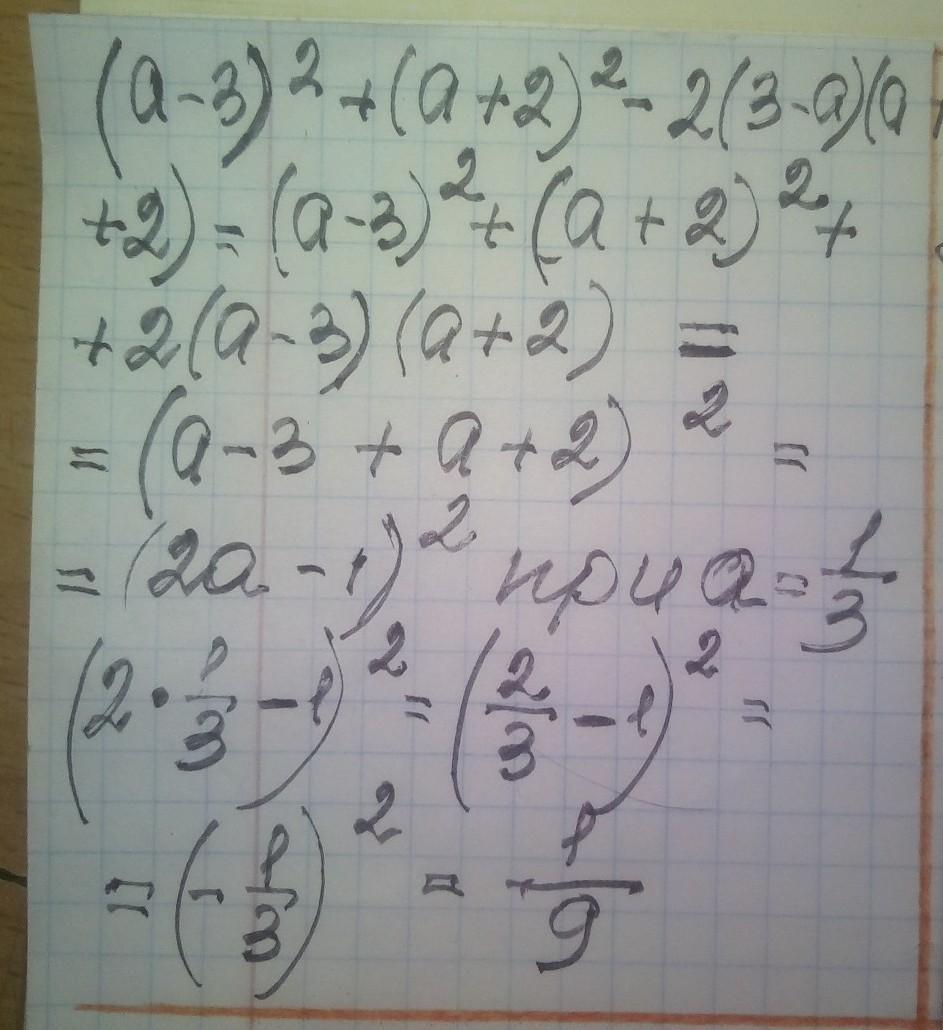 (a-3)² + (a+2)² - 2(3-a)(a+
+2) = (a-3)² + (a+2)² +
+2(a-3)(a+2) =
= (a-3 + a+2)² =
= (2a-1)² при a = 1/3
(2·1/3 - 1)² = (2/3 - 1)² =
= (-1/3)² = 1/9